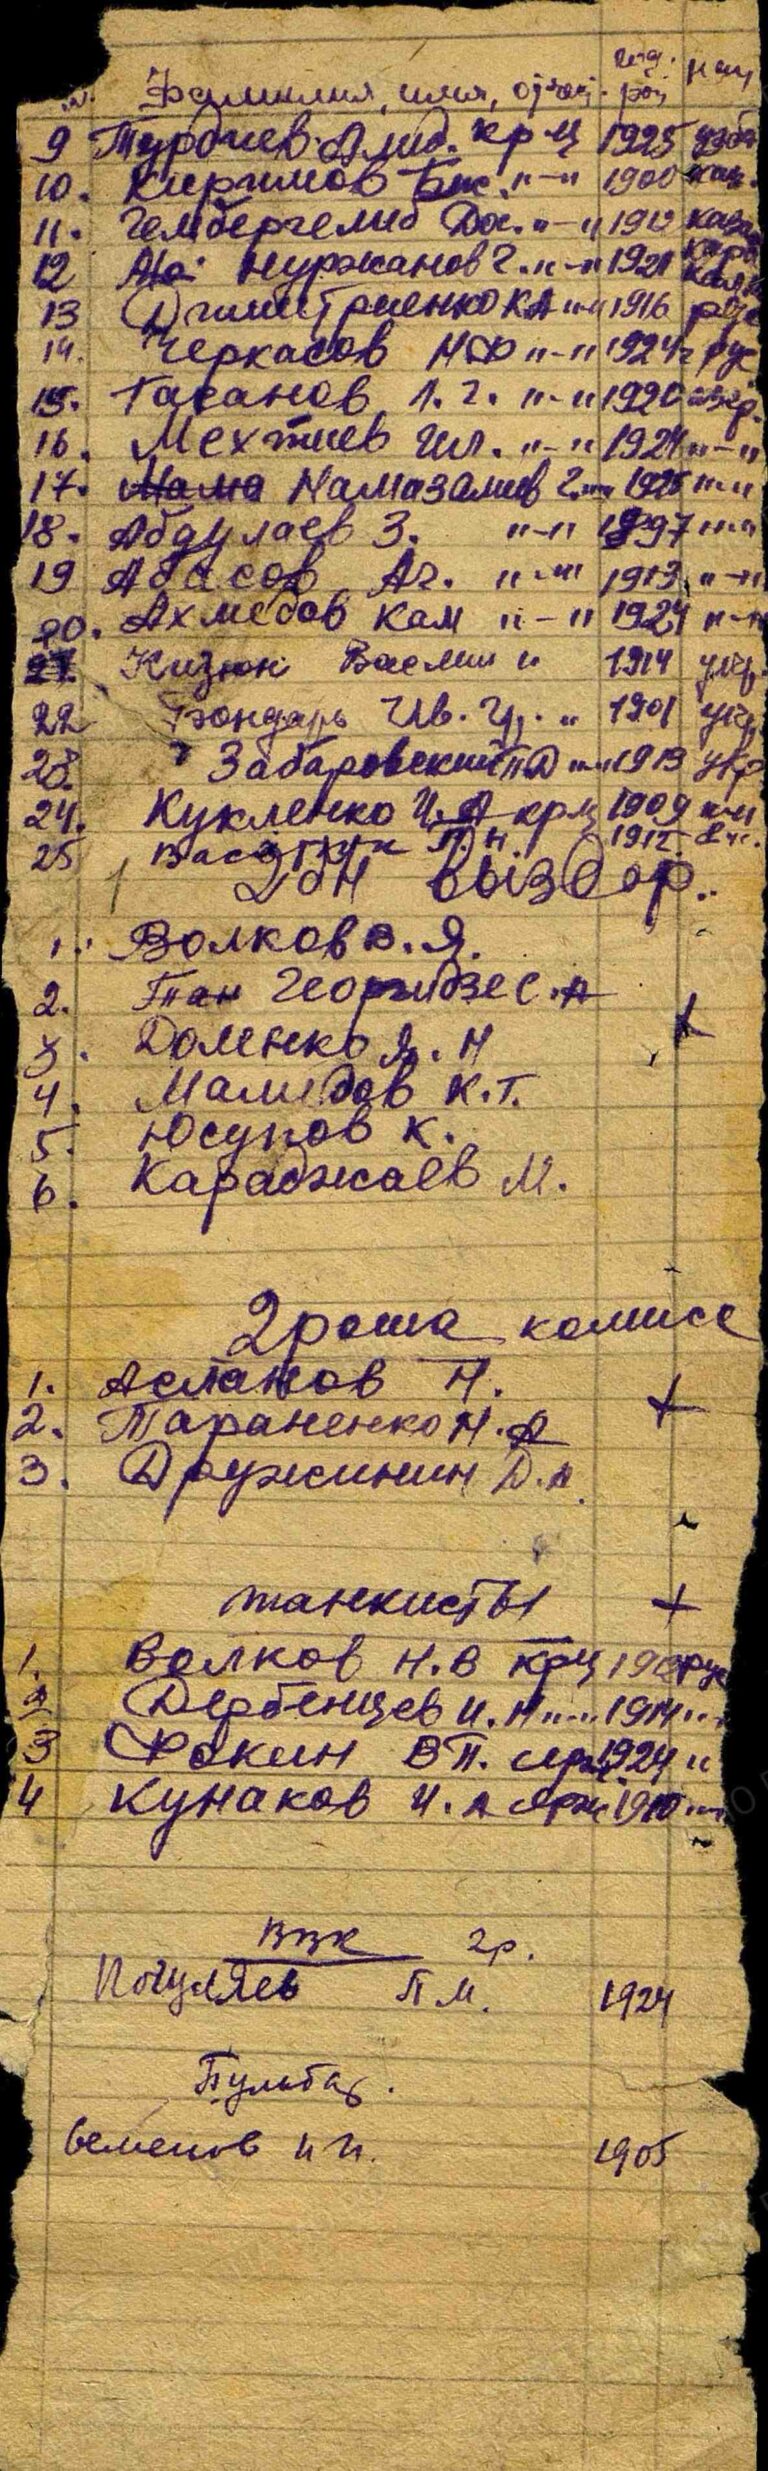 №. Фамилия, имя, отчес. год. рож нац
9 Турдиев Амед. кр-ц 1925 узб
10. Киримов Бис. "-" 1900
11. "-" 1912 каза
12 Нуржанов Г. "-" 1921
13 Дмитриенко К А "-" 1916 рус
14. Черкасов Н Ф "-" 1924 г рус
15. Гасанов А. Г. "-" 1920 азер.
16. Мехтиев Гил. "-" 1924 "-"
17. Мама Намазалиев Г. "-" 1925 "-"
18. Абдулаев З. "-" 1897 "-"
19 Абасов Аг. "-" 1913 "-"
20. Ахмедов Кам "-" 1924 "-"
21. Кизюк Васили " 1914 укр.
22 Бондарь Ив. Гр. " 1901 укр.
23. Забаровский П Д "-" 1913 укр
24. Кукленко И. А крц 1909
25 П. Н. 1912
2 бн выздор.
1. Волков В. Я.
2. Тан Георгидзе С. А
3. Доленко Я. Н
4. Мамедов К. Т.
5. Юсупов К.
6. Караджаев М.
2 рота комисс
1. Асланов Н.
2. Тараненко Н. А
3. Дружинин Д. А.
танкисты
1. Волков Н. В крц рус
2 Дербенцев И. Н "-" 1914 "-"
3 Фокин В П. 1924 "
4 Кунаков И. А 1910 "-"
ВВК 2 р.
Погуляев П М. 1924
Пульбат.
Семенов И И. 1905